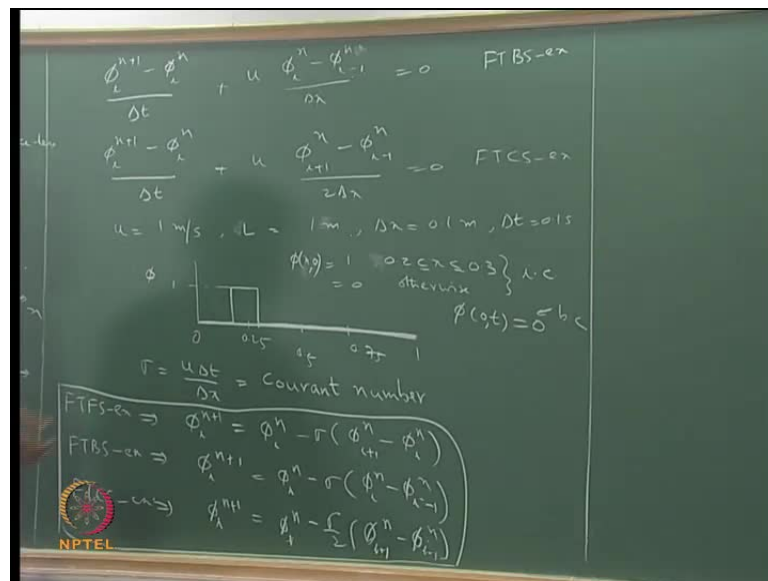 ϕᵢⁿ⁺¹ - ϕᵢⁿ / Δt + u ϕᵢⁿ - ϕᵢ₋₁ⁿ / Δx = 0 FTBS-ex
ϕᵢⁿ⁺¹ - ϕᵢⁿ / Δt + u ϕᵢ₊₁ⁿ - ϕᵢ₋₁ⁿ / 2Δx = 0 FTCS-ex
u = 1 m/s, L = 1 m, Δx = 0.1 m, Δt = 0.1 s
ϕ(x,0) = 1 0.2 ≤ x ≤ 0.3 } i.c
= 0 otherwise
ϕ(0,t) = 0 ← b c
ϕ 1
0 0.25 0.5 0.75 1
σ = uΔt / Δx = Courant number
FTFS-ex ⇒ ϕᵢⁿ⁺¹ = ϕᵢⁿ - σ(ϕᵢ₊₁ⁿ - ϕᵢⁿ)
FTBS-ex ⇒ ϕᵢⁿ⁺¹ = ϕᵢⁿ - σ(ϕᵢⁿ - ϕᵢ₋₁ⁿ)
-ex ⇒ ϕᵢⁿ⁺¹ = ϕᵢⁿ - σ/2 (ϕᵢ₊₁ⁿ - ϕᵢ₋₁ⁿ)
NPTEL
x